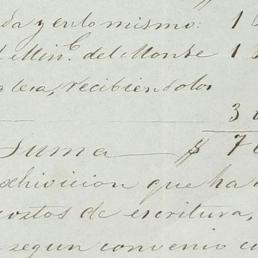 da y en lo mismo: 1
Min.o del Monte 1
recibiendolos
3
Suma $ 7
xhivicion que ha
costos de escritura,
segun convenio co